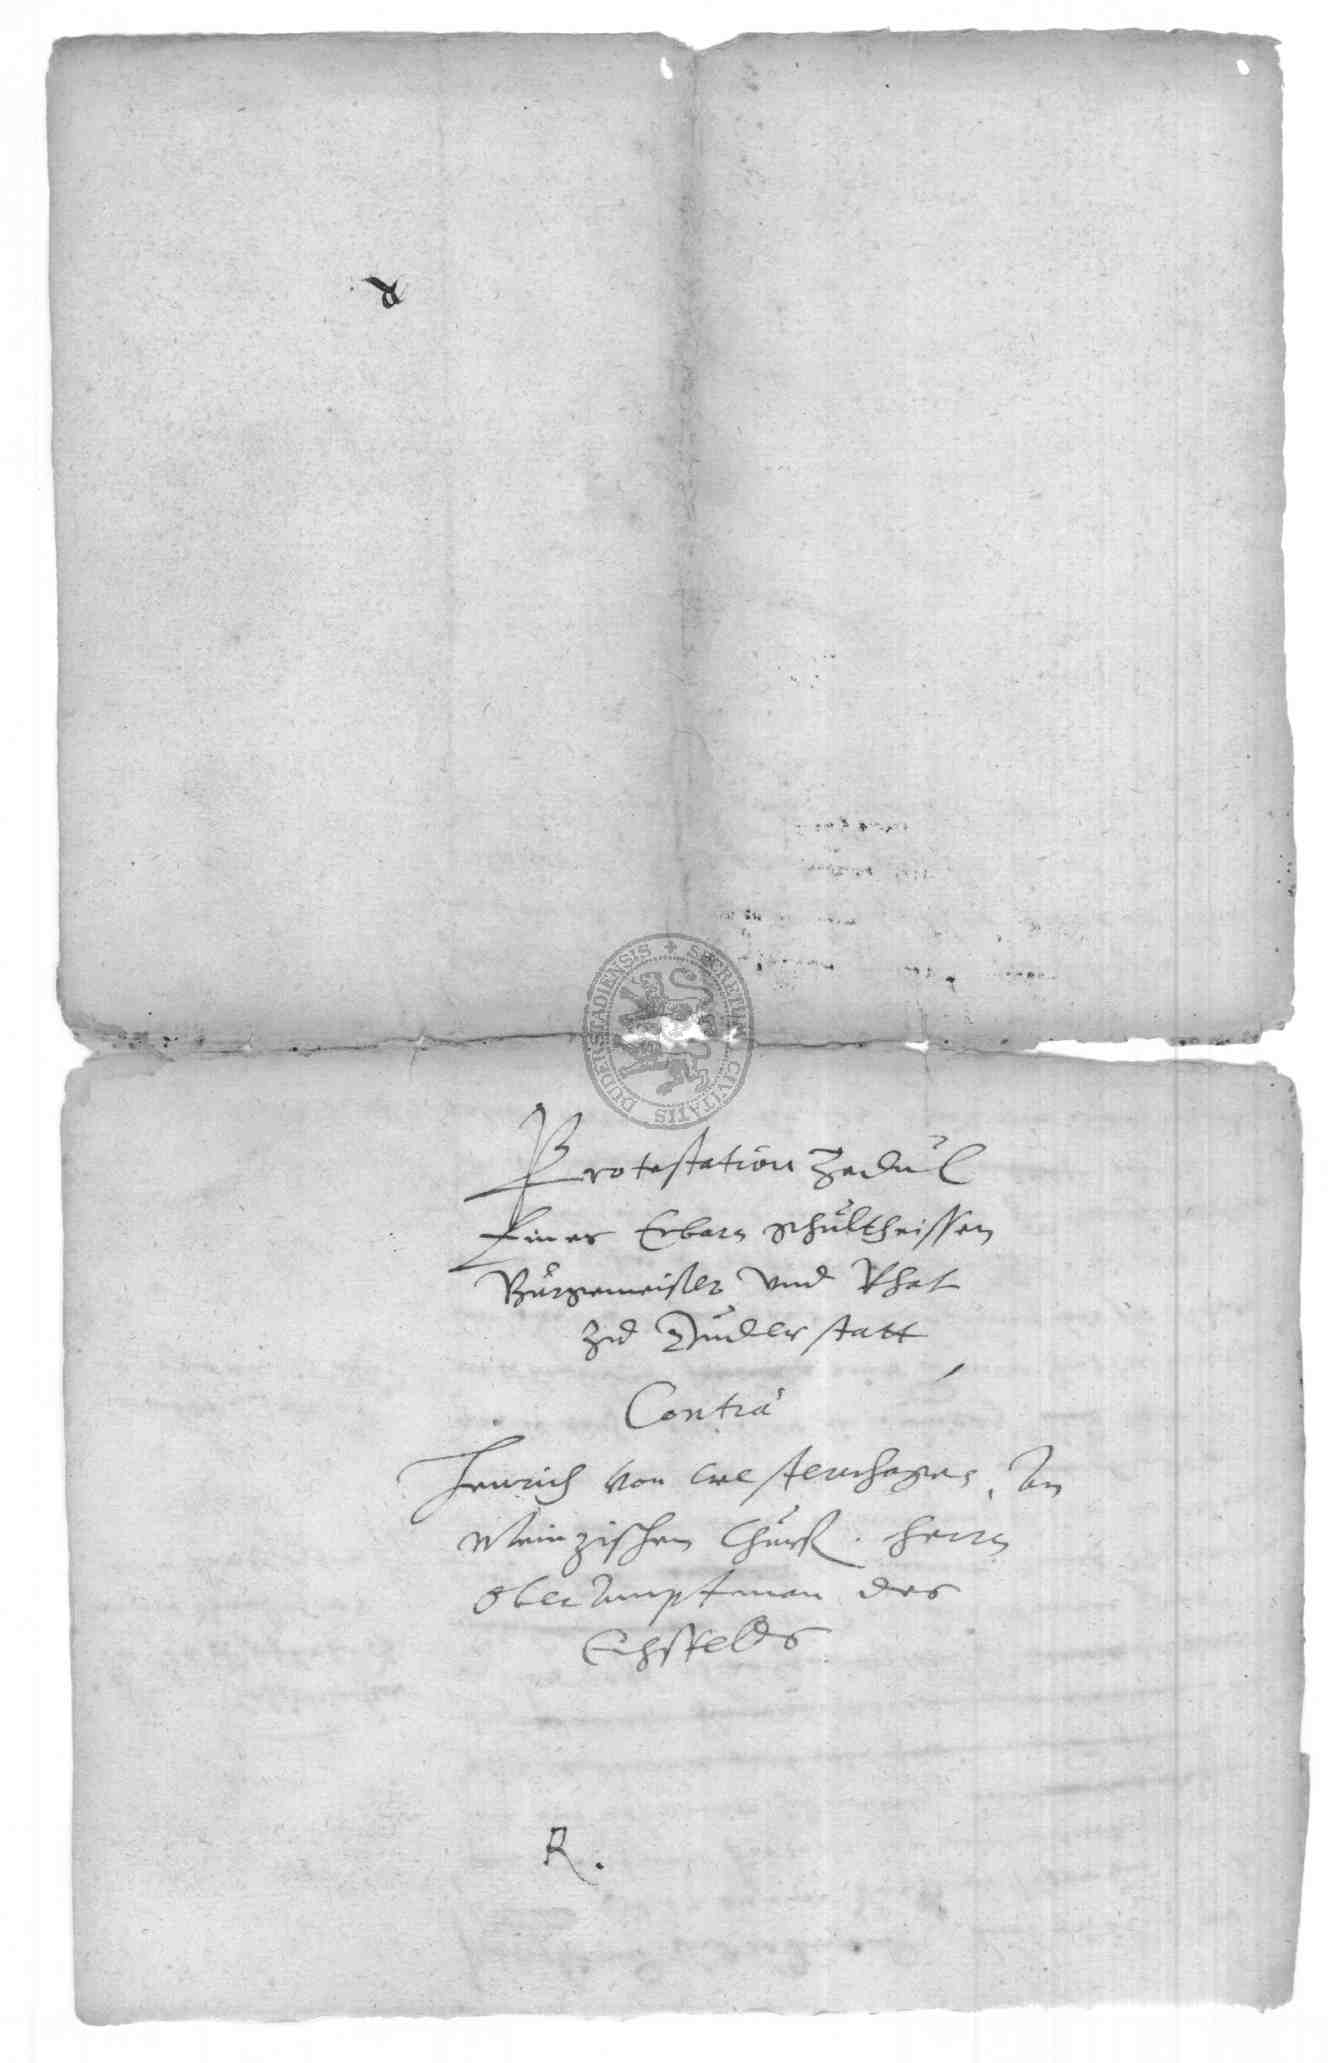 R
SECRETUM CIVITATIS DUDERSTADIENSIS
Protestation Zedul
Eines Erbarn Schultheissen
Bürgemeister Vnd Rhat
Zu Duderstatt
Contra
Heinrich von Westernhagen,
Meinzischen Churf. Herrn
Ober Amptman des
Eichsfelds
R.